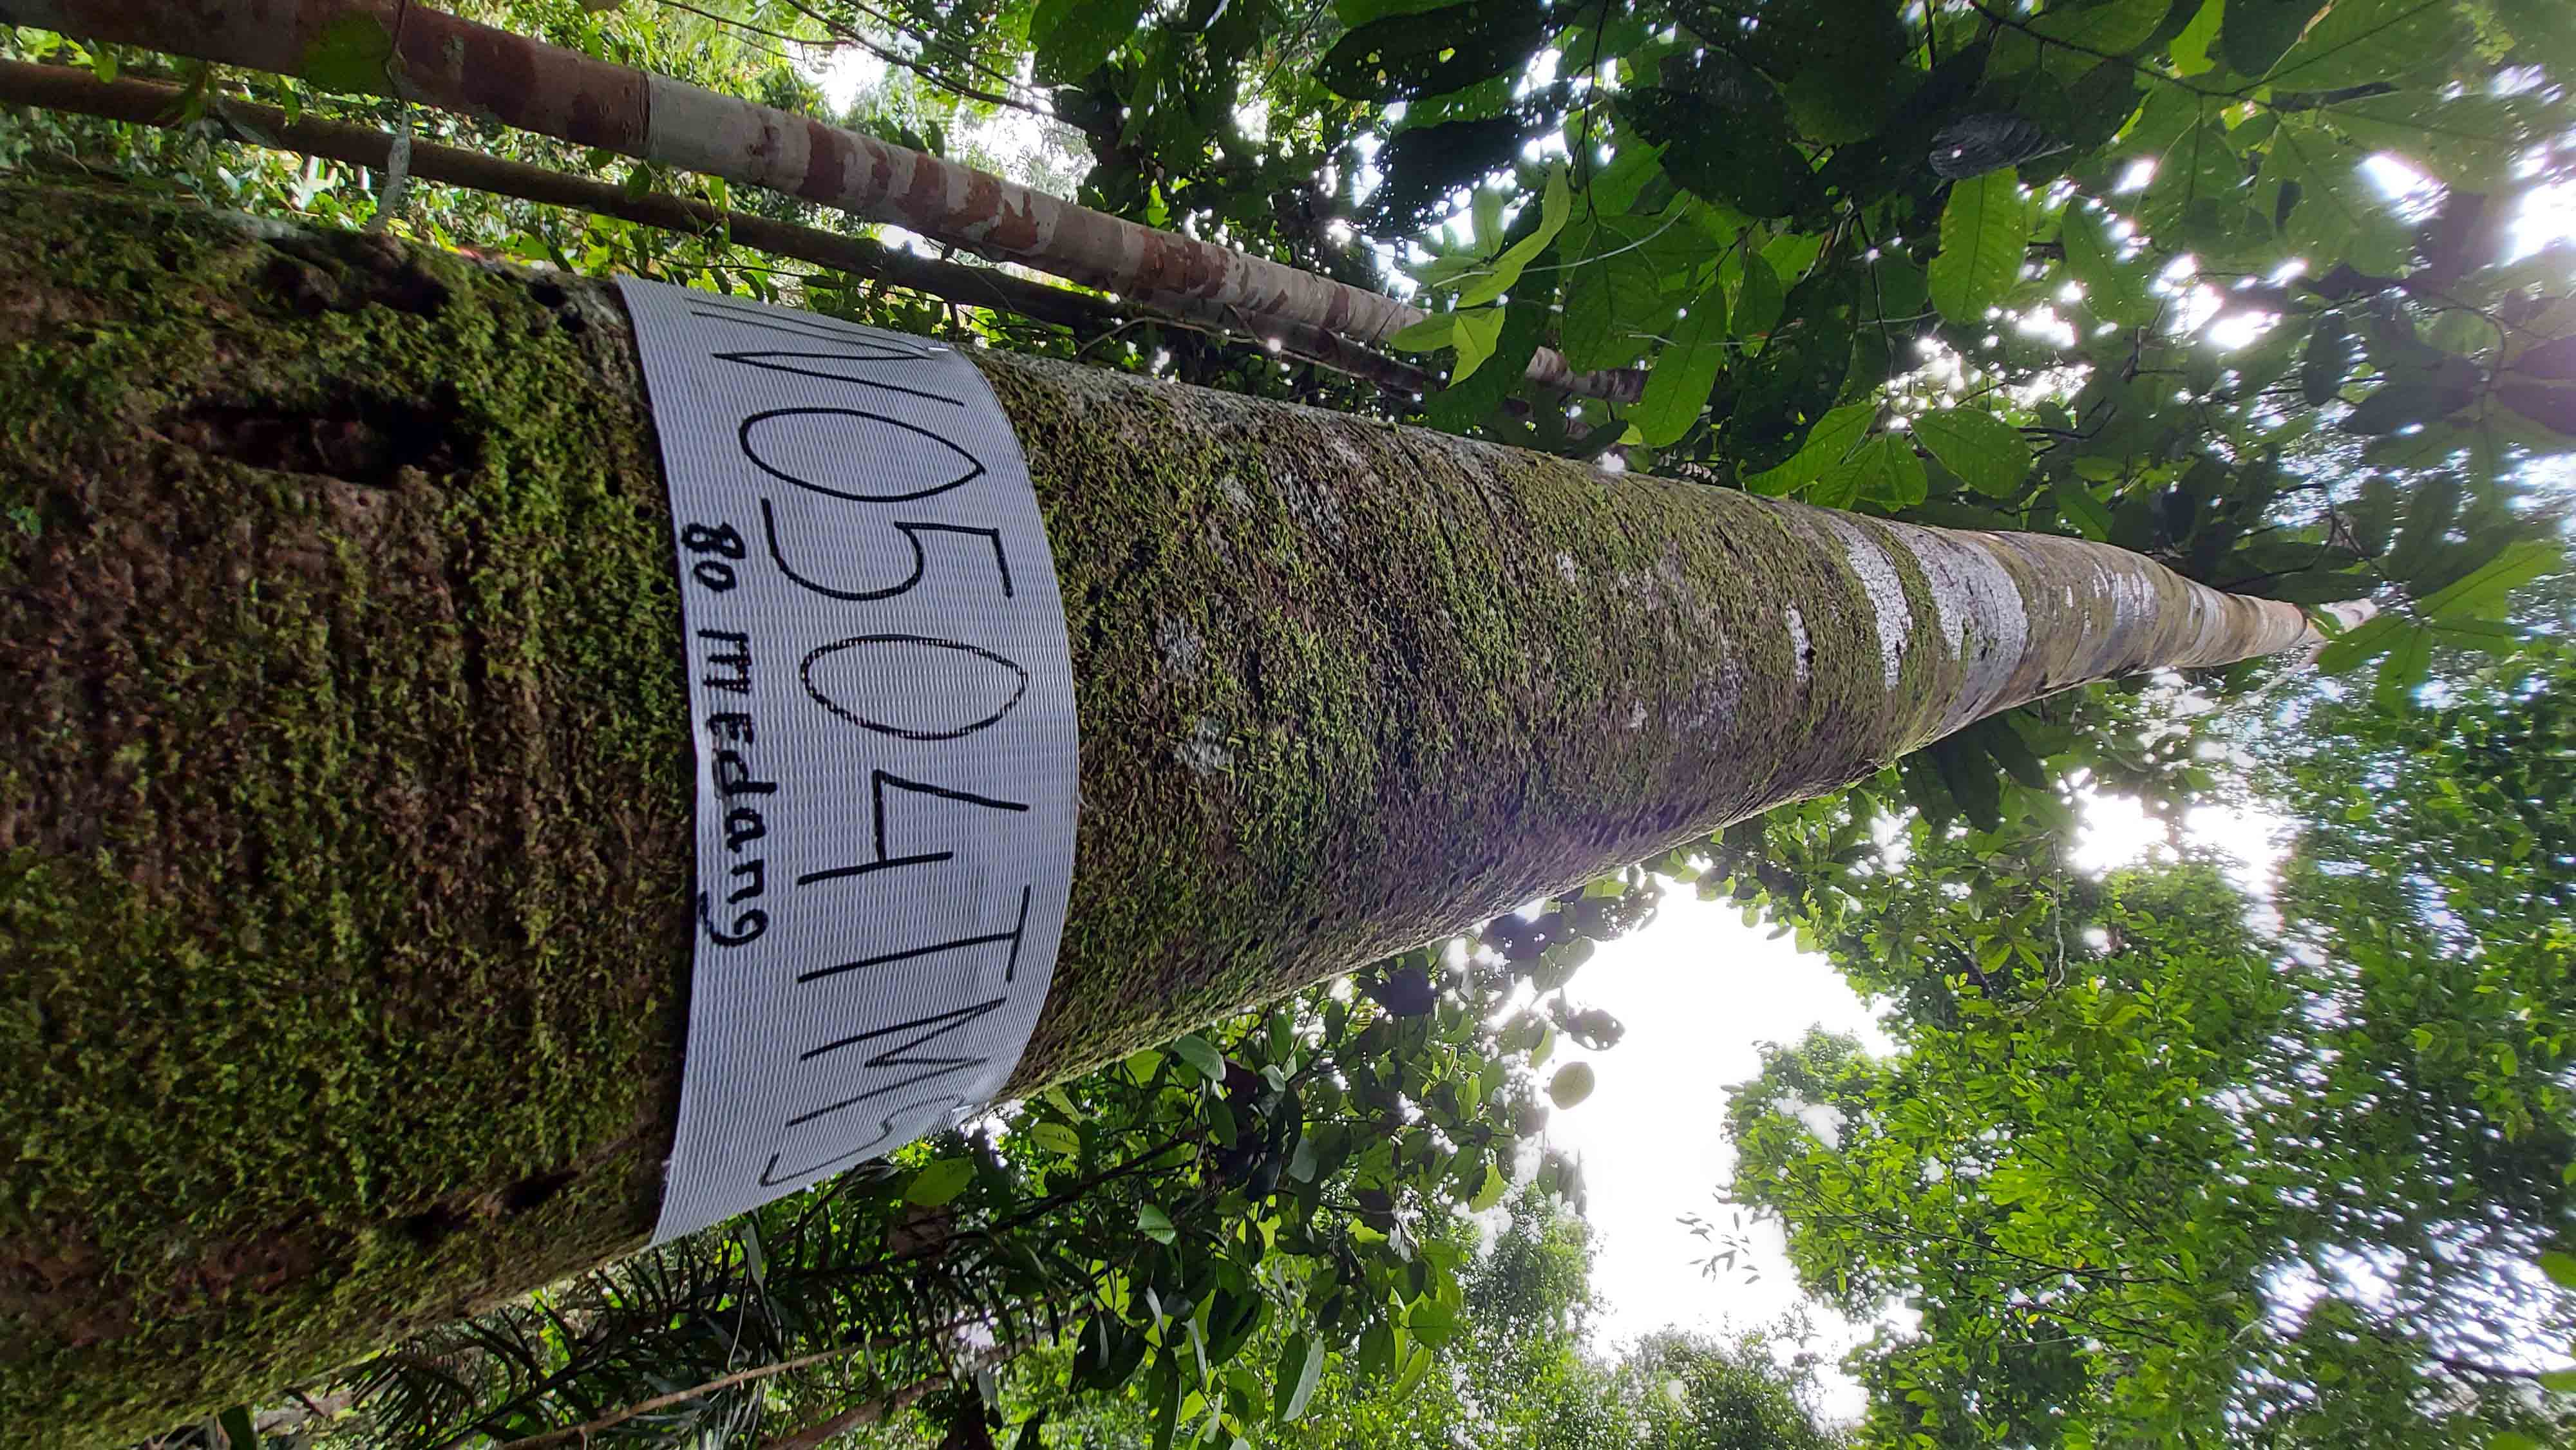 NO504TM
80 MEdang